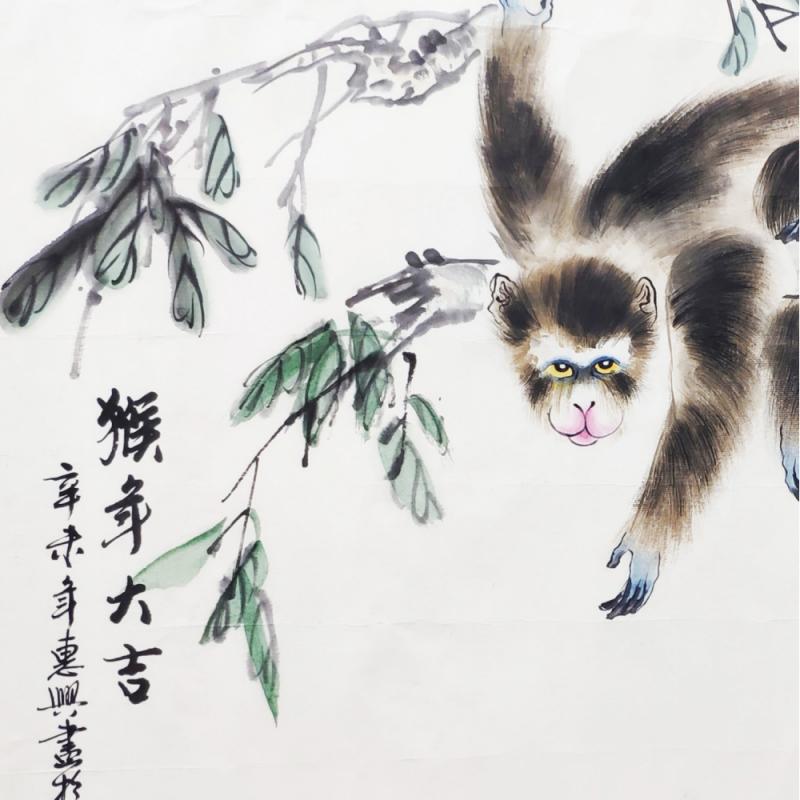 猴年大吉
辛未年惠興畫於